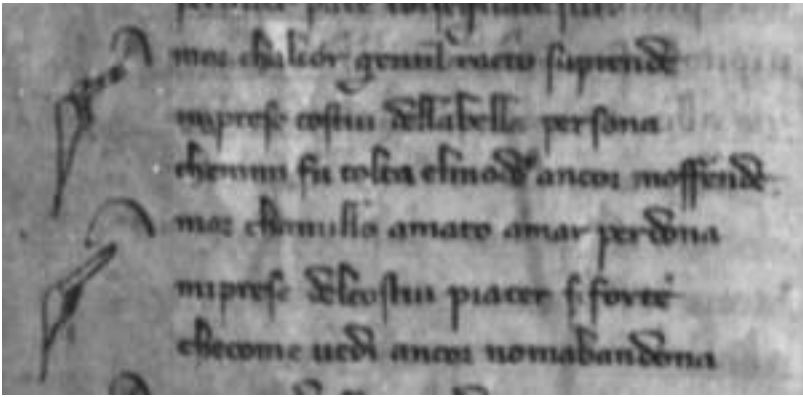 Amor chalcor gentil racto saprende
miprese costui dellabella persona
chemmi fu tolta elmodo ancor moffende
Amor chanullo amato amar perdona
miprese delcostui piacer si forte
checome uedi ancor nomabandona